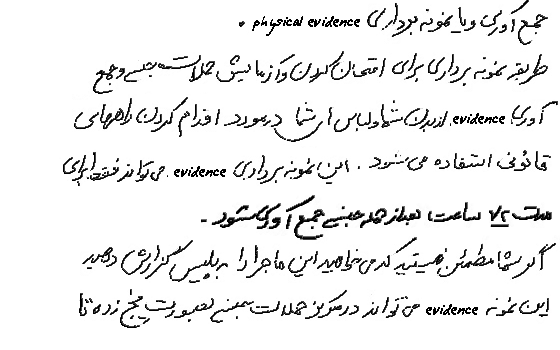 جمع آوری و یا نمونه برداری physical evidence .
طریقه نمونه برداری برای امتحان کردن و آزمایش حملات جنسی و جمع
آوری evidence از بدن شما و لباس های شما در مورد اقدام کردن راههای
قانونی استفاده می شود . این نمونه برداری evidence می تواند فقط برای
مدت ۷۲ ساعت بعد از حمله جنسی جمع آوری شود .
اگر شما مطمئن نیستید که می خواهید این ماجرا را به پلیس گزارش دهید
این نمونه evidence می تواند در مرکز حملات جنسی بصورت یخ زده تا